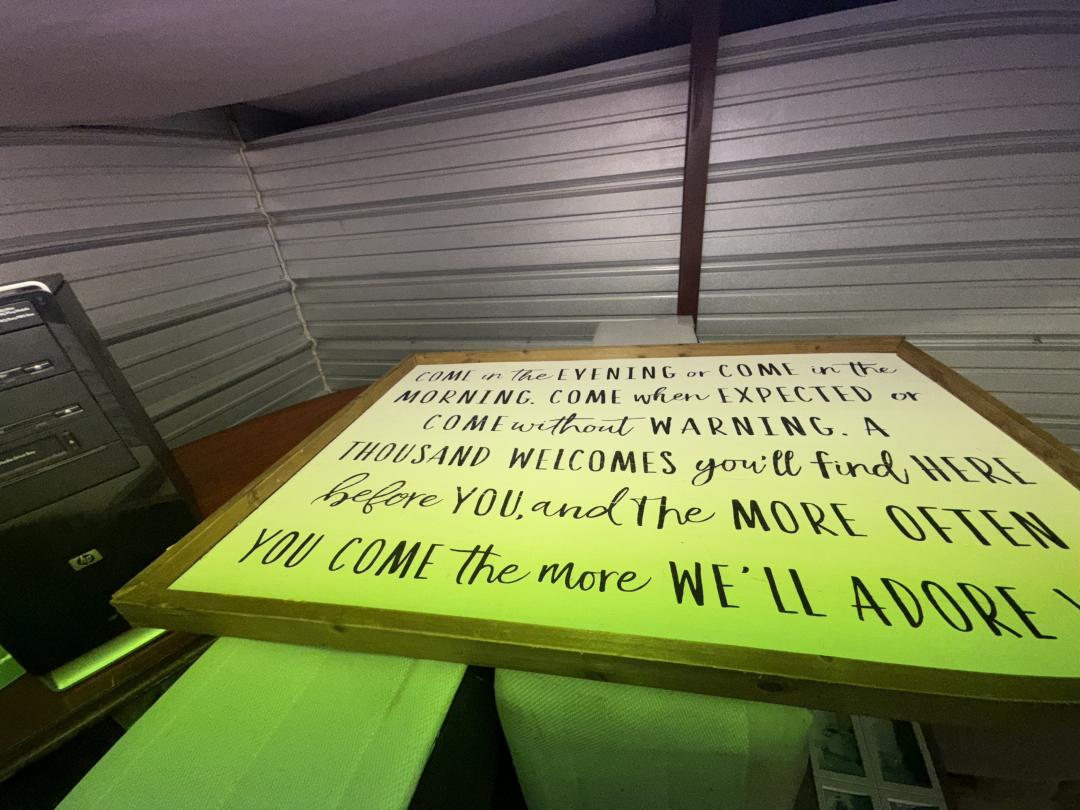 COME in the EVENING or COME in the
MORNING. COME when EXPECTED or
COME without WARNING. A
THOUSAND WELCOMES you'll find HERE
before YOU, and The MORE OFTEN
YOU COME the more WE'LL ADORE
hp